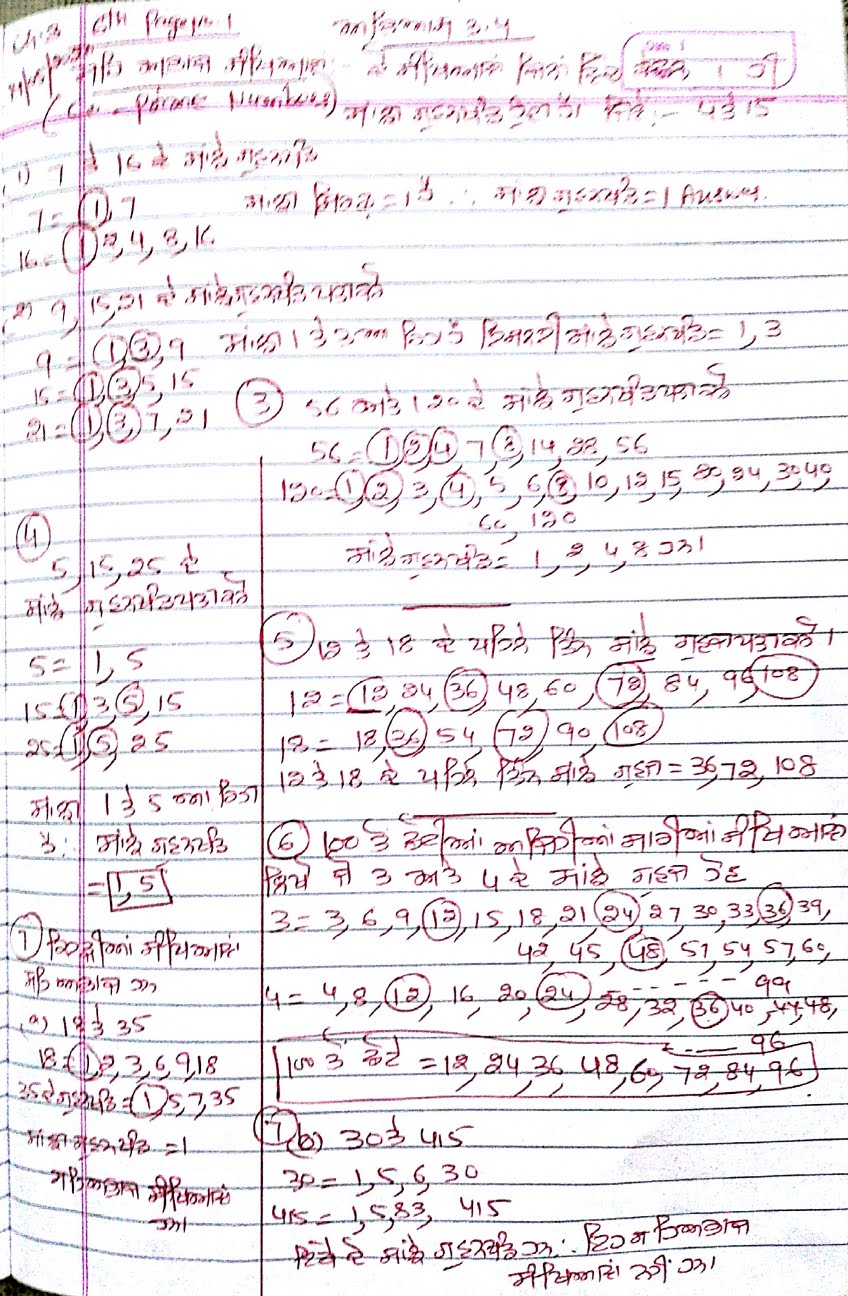 Ch.3 6th
ਅਭਿਆਸ 3.4
(Co-Prime Numbers) ਸਾਂਝਾ ਗੁਣਨਖੰਡ - 4 ਤੇ 15
(1) 7 ਤੇ 16 ਦੇ ਸਾਂਝੇ ਗੁਣਨਖੰਡ
7 = 1, 7 ਸਾਂਝਾ = 1 ਹੈ ∴ ਸਾਂਝੇ ਗੁਣਨਖੰਡ = 1 Answer.
16 = 1, 2, 4, 8, 16
9, 15, 21 ਦੇ ਸਾਂਝੇ ਗੁਣਨਖੰਡ ਪਤਾ ਕਰੋ
9 = 1, 3, 9 ਸਾਂਝਾ 1 ਤੇ 3 ਸਾਂਝੇ ਗੁਣਨਖੰਡ = 1, 3
15 = 1, 3, 5, 15
21 = 1, 3, 7, 21
(3) 56 ਅਤੇ 120 ਦੇ ਸਾਂਝੇ ਗੁਣਨਖੰਡ ਪਤਾ ਕਰੋ
56 = 1, 2, 4, 7, 8, 14, 28, 56
120 = 1, 2, 3, 4, 5, 6, 8, 10, 12, 15, 20, 24, 30, 40,
60, 120
ਸਾਂਝੇ ਗੁਣਨਖੰਡ = 1, 2, 4, 8 ਹਨ।
(4)
5, 15, 25 ਦੇ
ਸਾਂਝੇ ਗੁਣਨਖੰਡ ਪਤਾ ਕਰੋ
5 = 1, 5
15 = 1, 3, 5, 15
25 = 1, 5, 25
ਸਾਂਝਾ 1 ਤੇ 5
ਹੈ: ਸਾਂਝੇ ਗੁਣਨਖੰਡ
= 1, 5
(5) 12 ਤੇ 18 ਦੇ ਪਹਿਲੇ ਤਿੰਨ ਸਾਂਝੇ ਗੁਣਜ ਪਤਾ ਕਰੋ।
12 = 12, 24, 36, 48, 60, 72, 84, 96, 108
18 = 18, 36, 54, 72, 90, 108
12 ਤੇ 18 ਦੇ ਪਹਿਲੇ ਤਿੰਨ ਸਾਂਝੇ ਗੁਣਜ = 36, 72, 108
(6) 100 ਤੋਂ ਛੋਟੀਆਂ ਅਜਿਹੀਆਂ ਸਾਰੀਆਂ ਸੰਖਿਆਵਾਂ
ਲਿਖੋ ਜੋ 3 ਅਤੇ 4 ਦੇ ਸਾਂਝੇ ਗੁਣਜ ਹੋਣ
3 = 3, 6, 9, 12, 15, 18, 21, 24, 27, 30, 33, 36, 39,
42, 45, 48, 51, 54, 57, 60,
------ 99
4 = 4, 8, 12, 16, 20, 24, 28, 32, 36, 40, 44, 48,
---- 96
100 ਤੋਂ ਛੋਟੇ = 12, 24, 36, 48, 60, 72, 84, 96
(7) ਸੰਖਿਆਵਾਂ
ਹਨ
(a) 18 ਤੇ 35
18 = 1, 2, 3, 6, 9, 18
35 ਦੇ ਗੁਣਨਖੰਡ = 1, 5, 7, 35
ਸਾਂਝਾ ਗੁਣਨਖੰਡ = 1
ਸੰਖਿਆਵਾਂ
ਹਨ।
(7)(b) 30 ਤੇ 415
30 = 1, 5, 6, 30
415 = 1, 5, 83, 415
ਇੱਥੇ ਦੋ ਸਾਂਝੇ ਗੁਣਨਖੰਡ ਹਨ ∴ ਇਹ
ਸੰਖਿਆਵਾਂ ਨਹੀਂ ਹਨ।